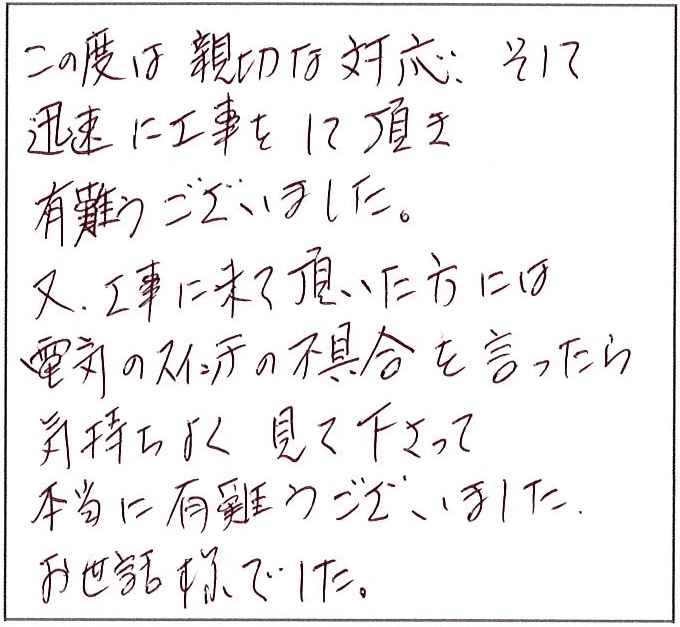 この度は親切な対応、そして
迅速に工事をして頂き
有難うございました。
又、工事に来て頂いた方には
電気のスイッチの不具合を言ったら
気持ちよく見て下さって
本当に有難うございました.
お世話様でした。